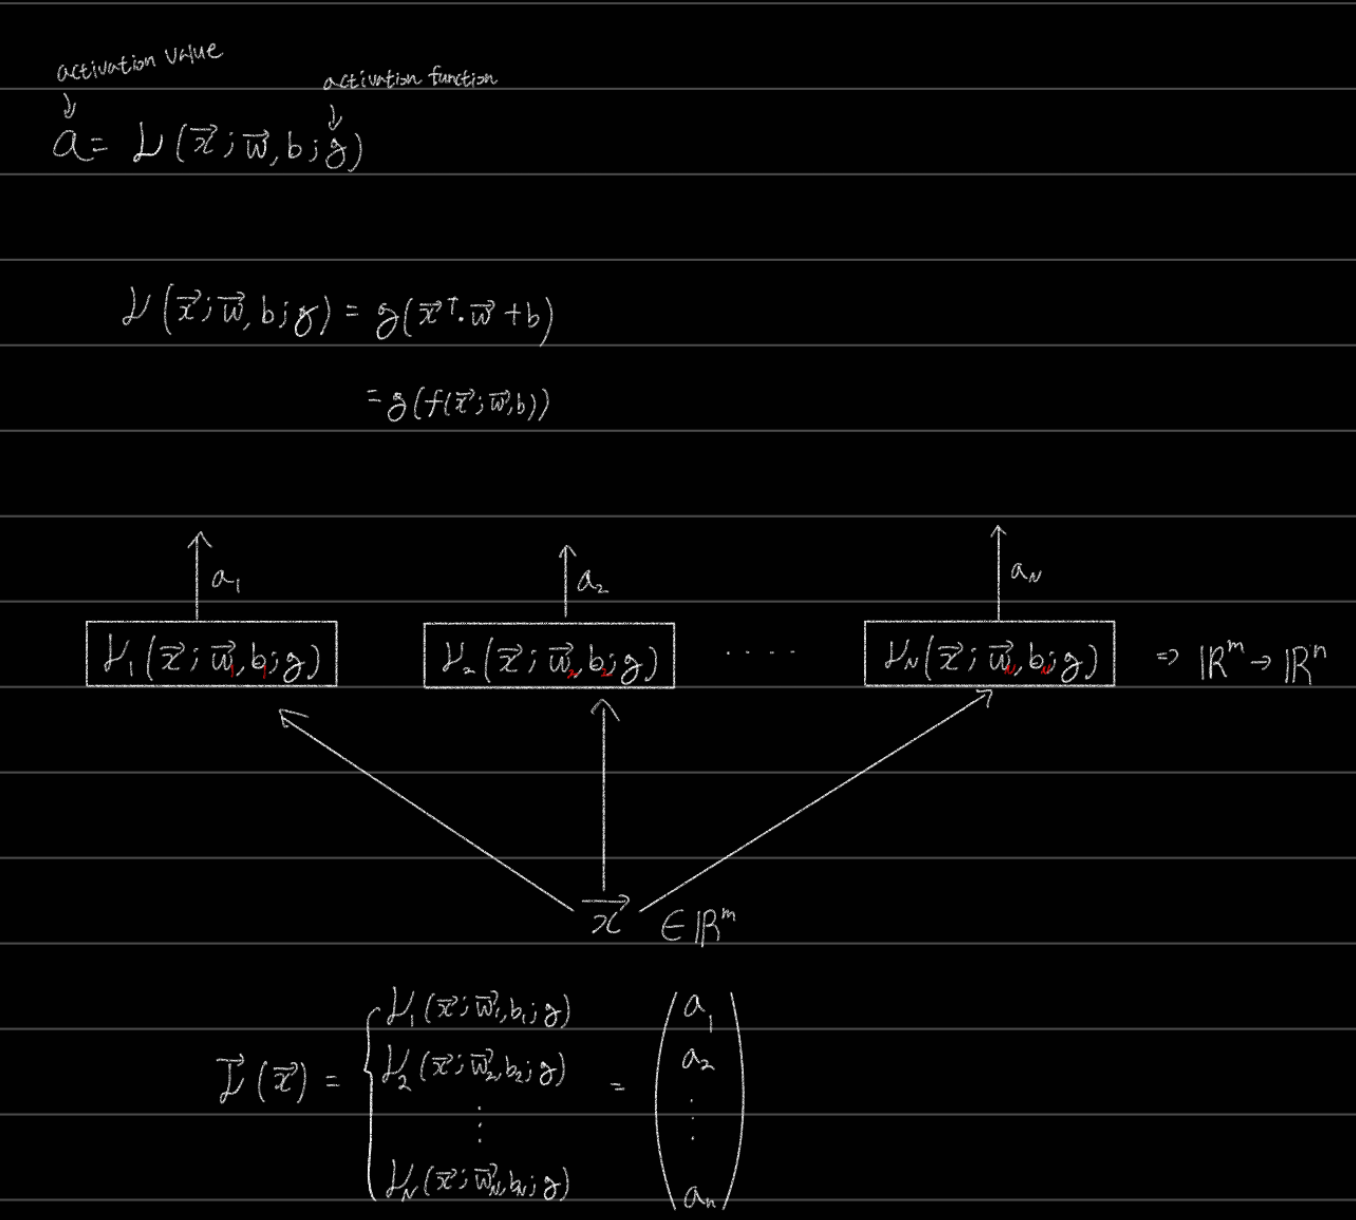 activation value
activation function
a = ν(x⃗; w⃗, b; g)
ν(x⃗; w⃗, b; g) = g(x⃗ᵀ·w⃗ + b)
= g(f(x⃗; w⃗, b))
a₁ a₂ a_N
ν₁(x⃗; w⃗₁, b₁; g) ν₂(x⃗; w⃗₂, b₂; g) ····· ν_N(x⃗; w⃗_N, b_N; g) ⇒ ℝᵐ → ℝⁿ
x⃗ ∈ ℝᵐ
ν₁(x⃗; w⃗₁, b₁; g) a₁
ν₂(x⃗; w⃗₂, b₂; g) a₂
ν⃗(x⃗) = ⋮ = ⋮
ν_N(x⃗; w⃗_N, b_N; g) aₙ